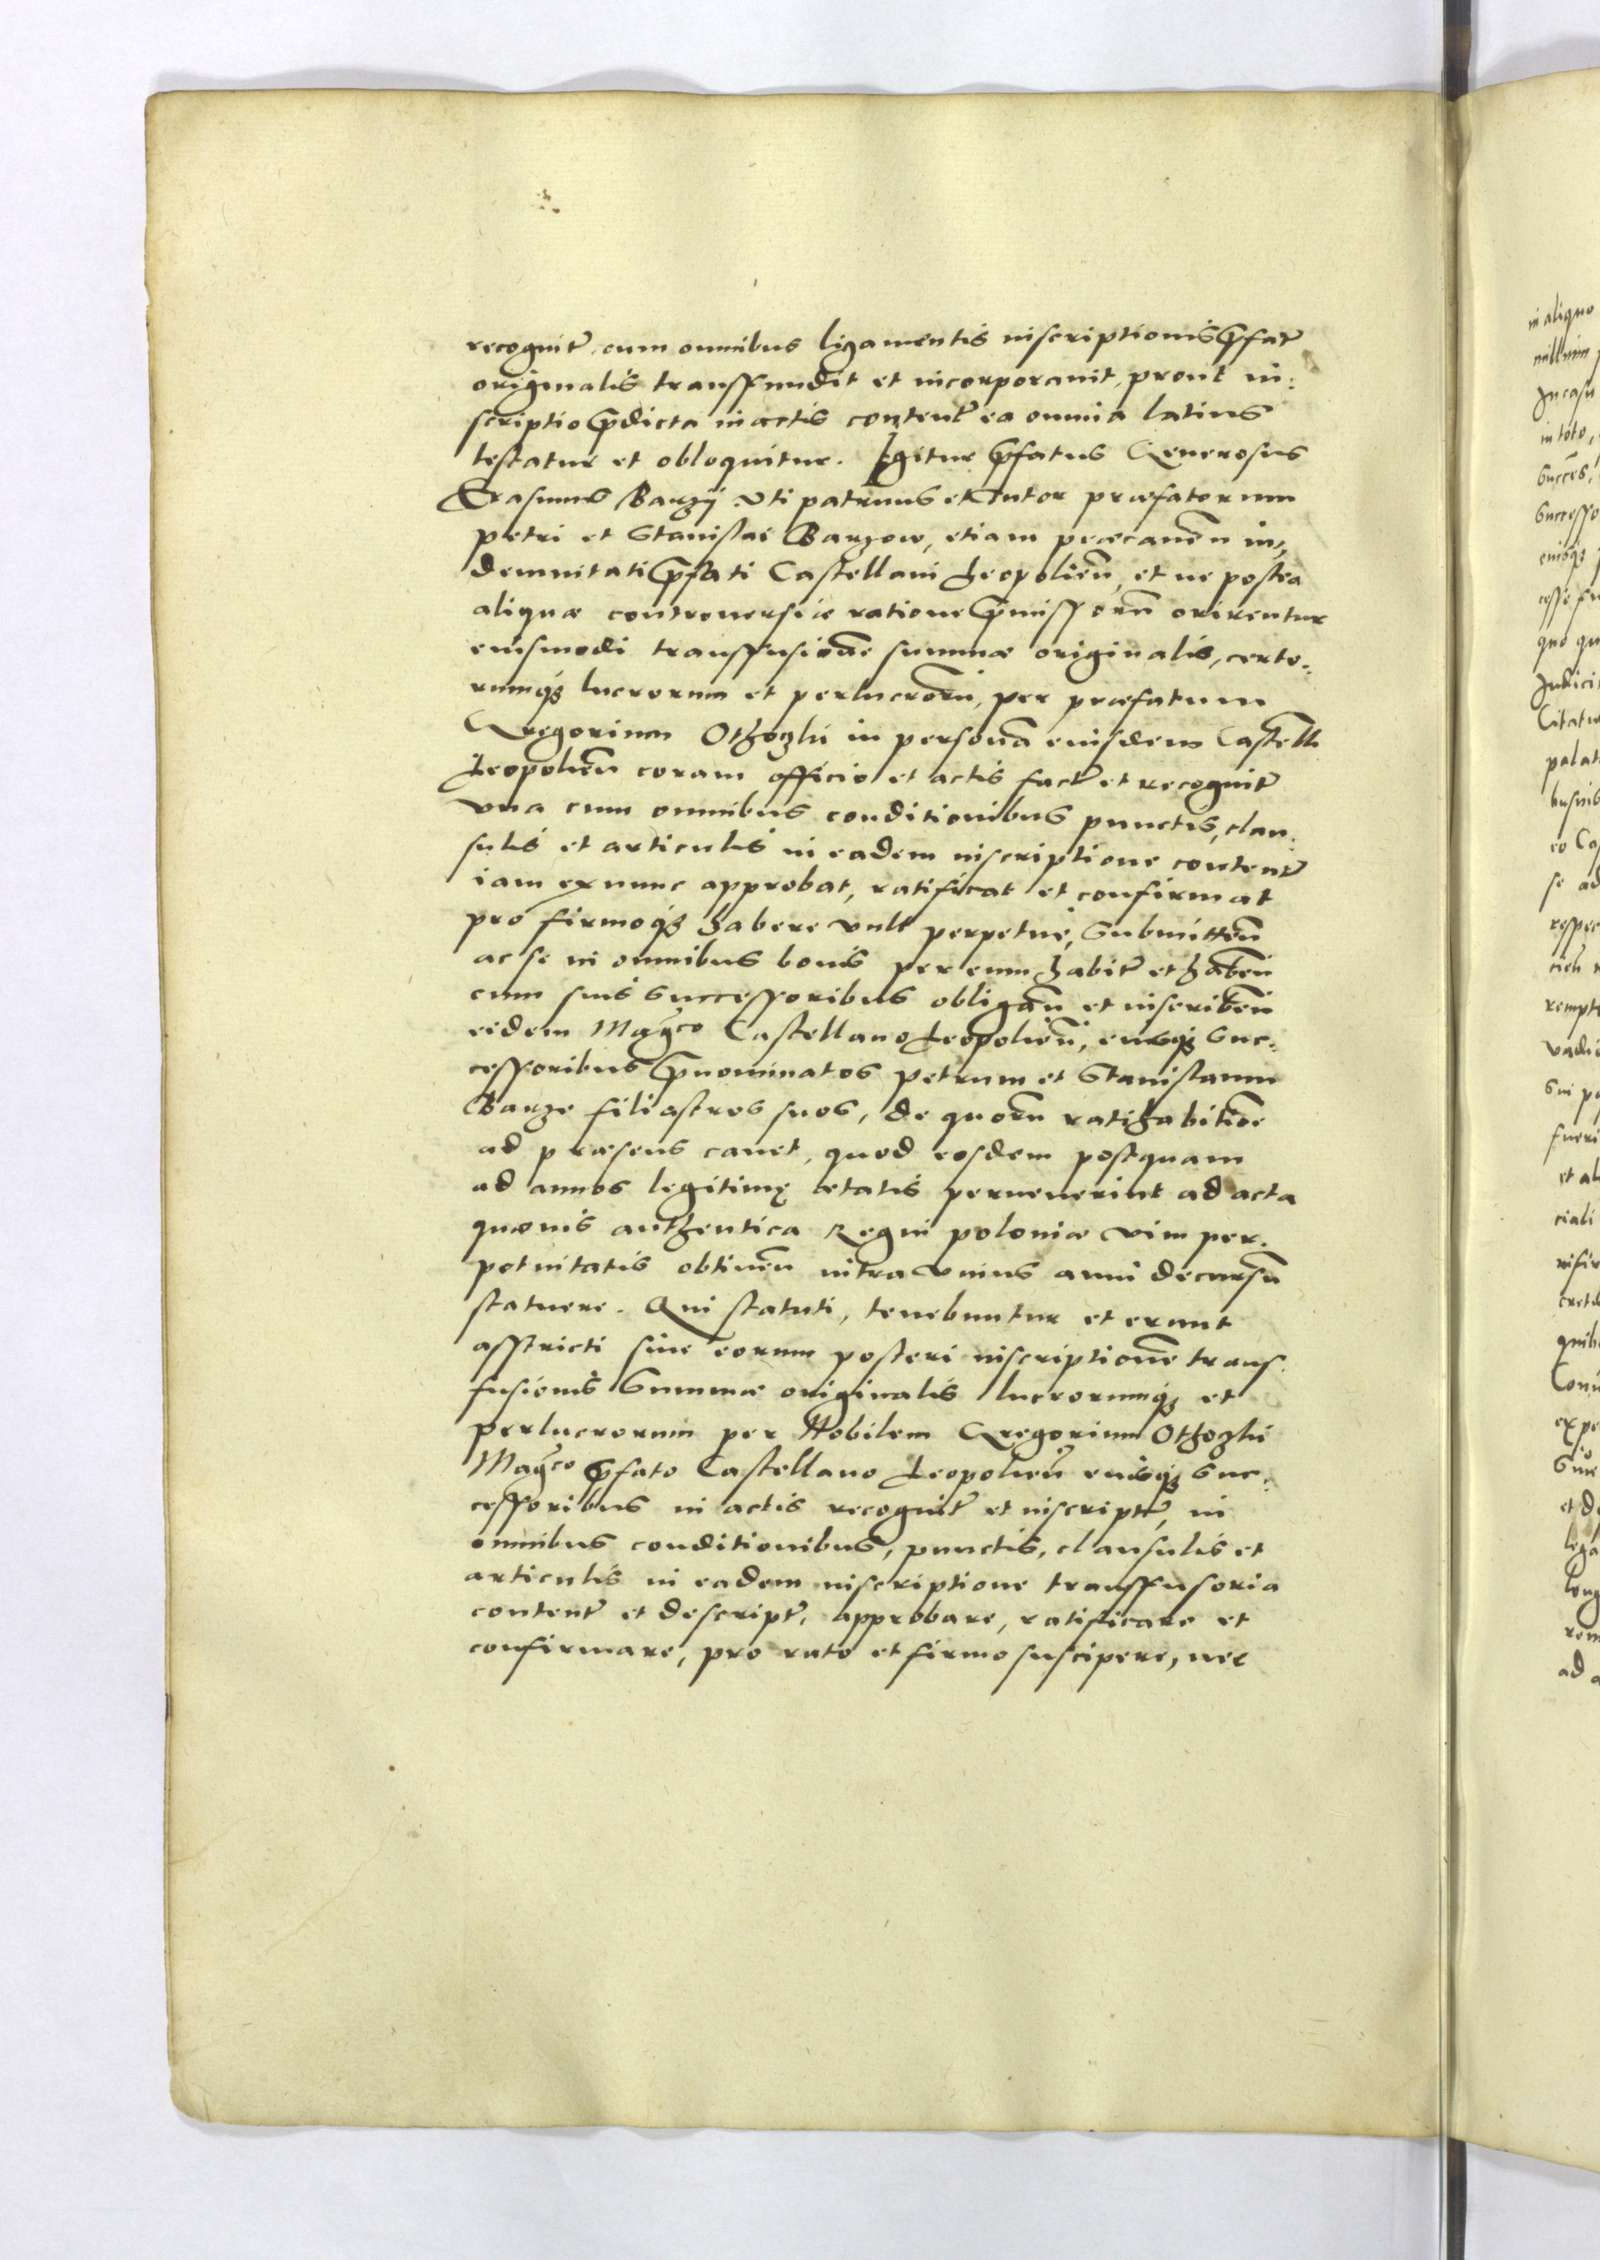 recognit(ur) cum omnibus ligamentis inscriptionis p(rae)fat(ae)
originalis transffundit et incorporauit, prout in:
scriptio p(rae)dicta in actis content(a) ea omnia latius
testatur et obloquitur. Igitur p(rae)fatus Generosus
Erasmus Barzÿ vti patruus et Tutor præfatorum
Petri et Stanislai Barzow, etiam præcauen̄ in:
demnitati p(rae)fati Castellani Leopolien̄, et ne postea
aliquæ controuersiæ ratione p(rae)missorū orirentur
eiusmodi transffusionē summæ originalis, certo:
rumq₃ lucrorum et perlucrorū, per præfatum
Gregorium in personā eiusdem Castell
Leopolien̄ coram officio et actis fact̄ et recognit̄
vna cum omnibus conditionibus punctis, clau:
sulis et articulis in eadem inscriptione content̄
iam ex nunc approbat, ratificat et confirmat
pro firmoq₃ habere vult perpetue, Submitten̄
ac se in omnibus bonis per eum habit̄ et haben̄
cum suis Successoribus obligan̄ et inscriben̄
eidem Mag͡co Castellano Leopolien̄, eiusq₃ Suc:
cessoribus p(rae)nominatos Petrum et Stanislaum
Barze filiastros suos, de quorū ratihabitiōe
ad præsens cauet, quod eosdem postquam
ad annos legitimę ætatis peruenerint ad acta
quæuis authentica Regni Poloniæ vim per:
petuitatis obtinen̄ intra vnius anni decursū
statuere. Qui statuti, tenebuntur et erunt
asstricti siue eorum posteri inscriptionē trans:
fusionis Summæ originalis lucrorumq₃ et
perlucrorum per Nobilem Gregorium
Mag͡co p(rae)fato Castellano Leopolien̄ eiusq₃ Suc:
cessoribus in actis recognit̄ et inscript̄, in
omnibus conditionibus, punctis, clausulis et
articulis in eadem inscriptione transffusoria
content̄ et descript̄, approbare, ratificare et
confirmare, pro rato et firmo suscipere, nec